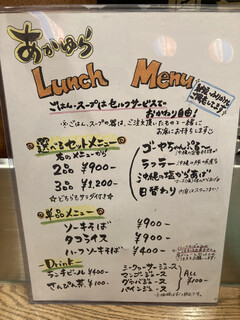 あかゆら
Lunch Menu
ごはん・スープはセルフサービスで
おかわり自由!
※ごはん、スープの器は、ご注文頂いたものと一緒に
お席にお持ちします
選べるセットメニュー
右のメニューから
2品 ¥900
3品 ¥1,200
☆どちらもサラダ付き☆
ゴーヤちゃんぷるー
ラフテー
沖縄の塩からあげ
日替わり
単品メニュー
ソーキそば ¥900
タコライス ¥900
ハーフソーキそば ¥400
Drink
ランチビール ¥400
さんぴん茶 ¥100
シークヮーサージュース
マンゴージュース
グァバジュース
パインジュース
ALL
¥100